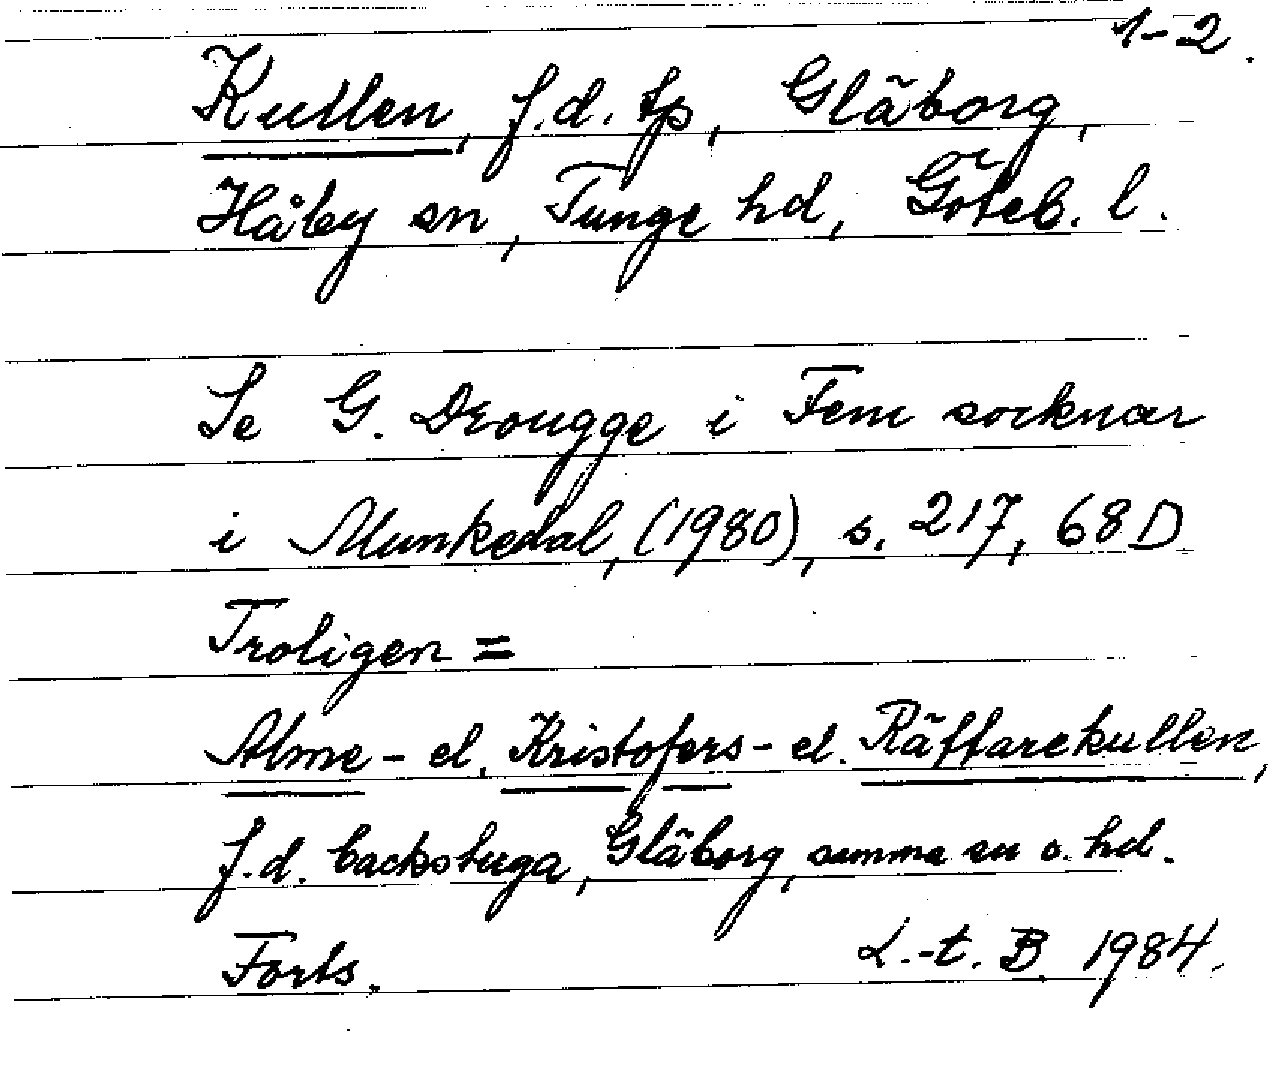 1-2.
Kullen, f.d. tp, Gläborg,
Håby sn, Tunge hd, Göteb. l.
Se G. Drougge i Fem socknar
i Munkedal, (1980), s. 217, 68D
Troligen =
Alme- el. Kristofers- el. Räffarekullen,
f.d. backstuga, Gläborg, samma sn o. hd.
Forts. L.-t. B. 1984.